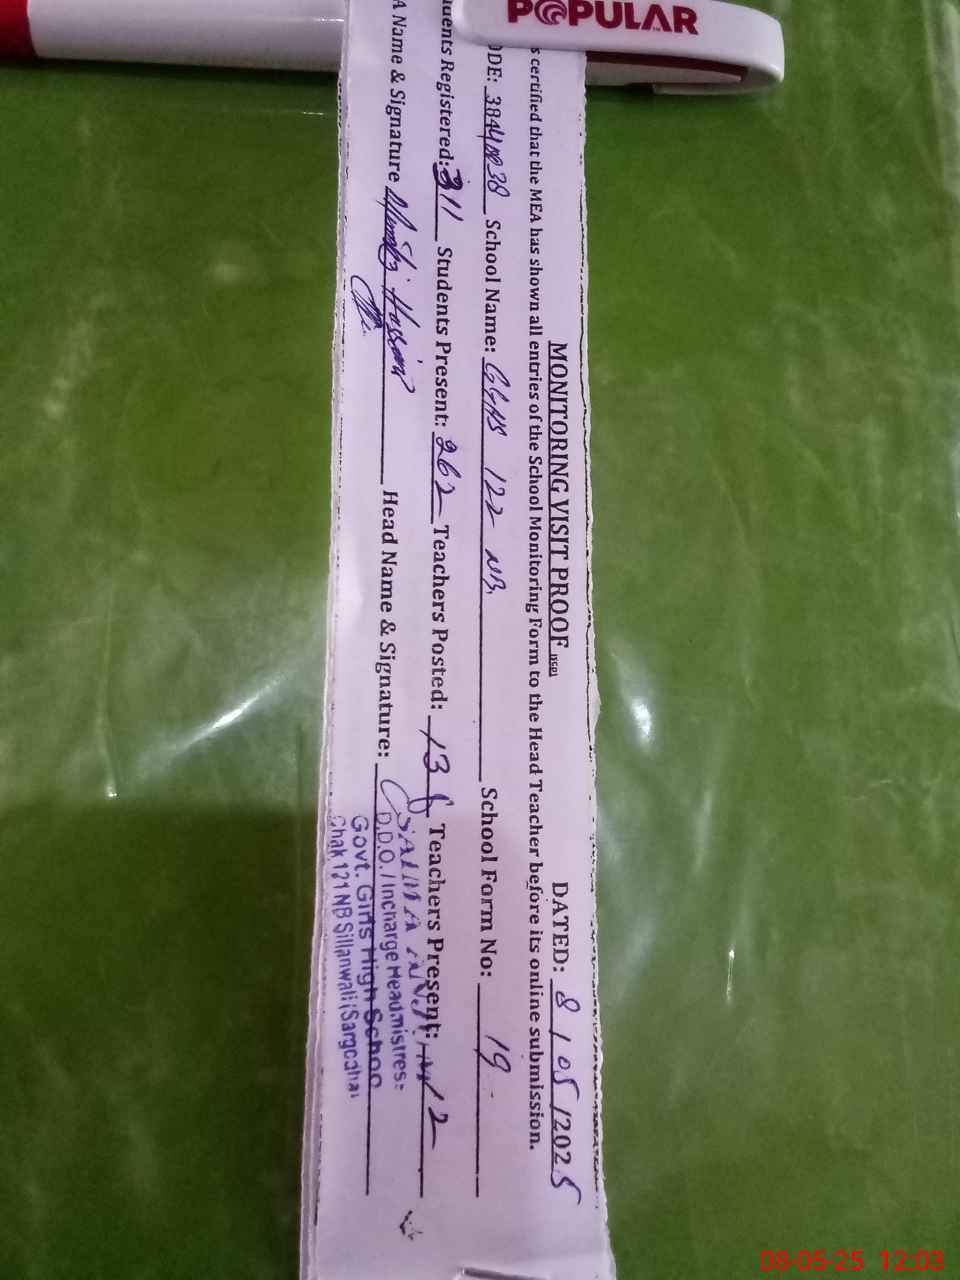 POPULAR
MONITORING VISIT PROOF (SSP) DATED: 8/05/2025
s certified that the MEA has shown all entries of the School Monitoring Form to the Head Teacher before its online submission.
ODE: 38440038 School Name: GGHS 122 NB School Form No: 19
dents Registered: 311 Students Present: 262 Teachers Posted: 13 Teachers Present: 12
A Name & Signature Hussain Head Name & Signature:
SAIMA
D.D.O./Incharge Headmistres:
Govt. Girls High Schoo
Chak 121 NB Sillanwali (Sargodha)
08-05-25 12:03